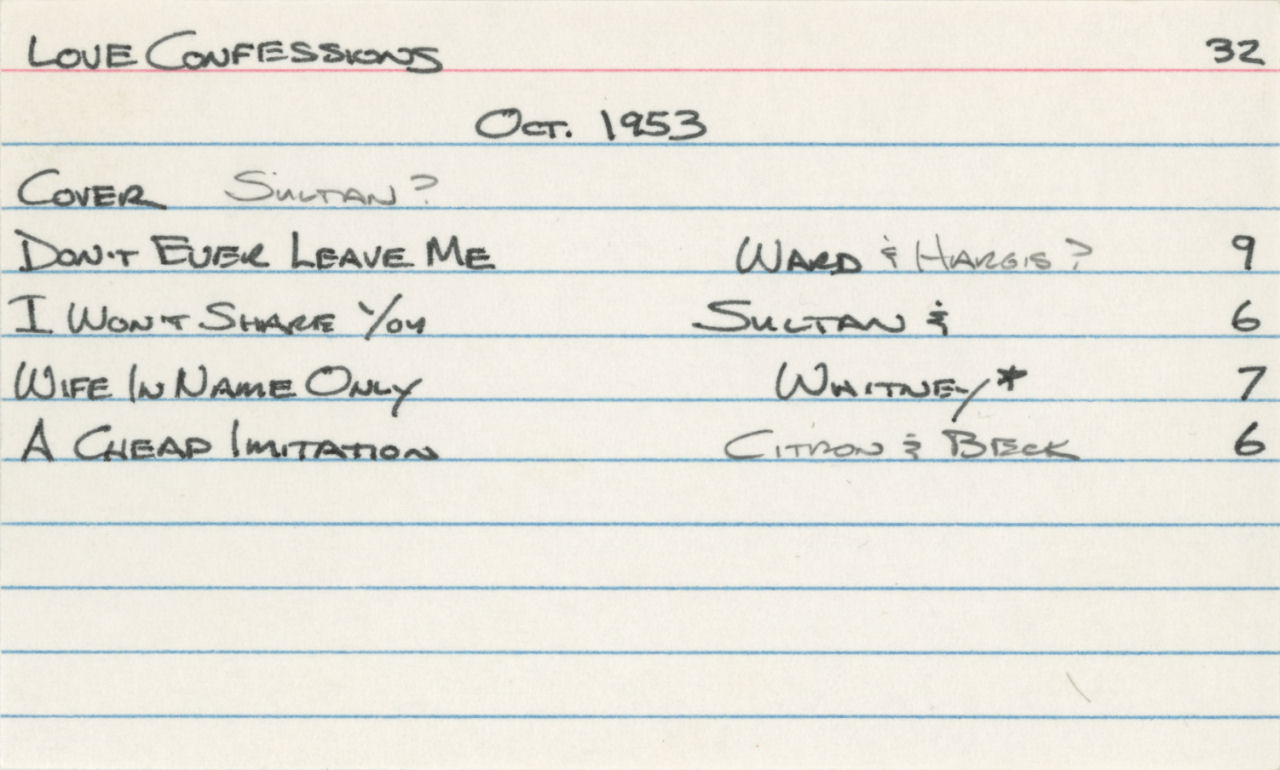 LOVE CONFESSIONS 32
OCT. 1953
COVER SULTAN?
DON'T EVER LEAVE ME WARD & HARGIS? 9
I WON'T SHARE YOU SULTAN & 6
WIFE IN NAME ONLY WHITNEY* 7
A CHEAP IMITATION CITRON & BECK 6